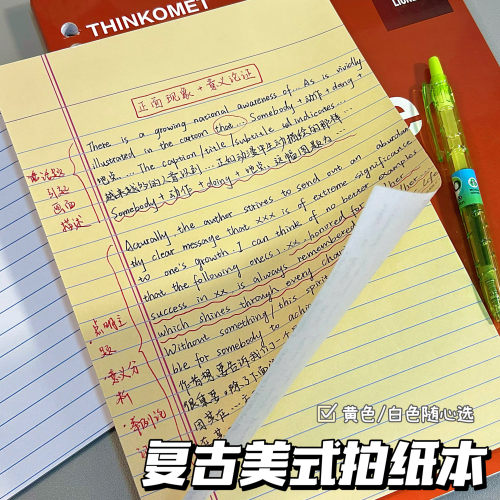 THINKOMET
正面现象 + 意义论证
There is a growing national awareness of... As is vividly
illustrated in the cartoon that... Somebody + 动作 + doing +
地点... The caption/title/subtitle indicates...
Somebody + 动作 + doing + 地点. 这幅图题为...
描述
Accurally the author strives to send out an abundan
thy clear message that xxx is of extreme significance
to one's growth. I can think of no better examples
that the following one(s). xx, honoured for
success in xx is always remembered
which shines through every cha
Without something/this spirit
ble for somebody to achi
点明主
题
· 意义分
析
· 举例论
☑ 黄色/白色随心选
复古美式拍纸本